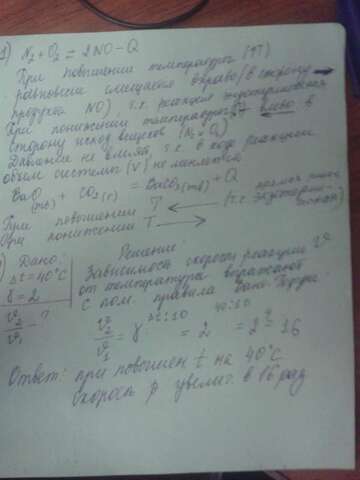 1) N₂ + O₂ = 2NO - Q
При повышении температуры (↑T)
равновесие смещается вправо/в сторону →
продукта NO) т.к. реакция эндотермическая
При понижении температуры ← влево в
сторону исход веществ (N₂ и O₂)
Давление не влияет, т.к. в ходе реакции
объем системы (V) не меняется
BaO (тв) + CO₂ (г) = BaCO₃ (тв) + Q
При повышении T ← (т.к. экзотерми-
При понижении T → ческая)
Дано:
Δt = 40°C
γ = 2
V₂/V₁ - ?
Решение:
Зависимость скорости реакции V
от температуры выражают
с пом. правила Вант-Гоффа:
V₂/V₁ = γ^Δt:10 = 2^40:10 = 2⁴ = 16
Ответ: при повышен t на 40°C
скорость р увелич. в 16 раз